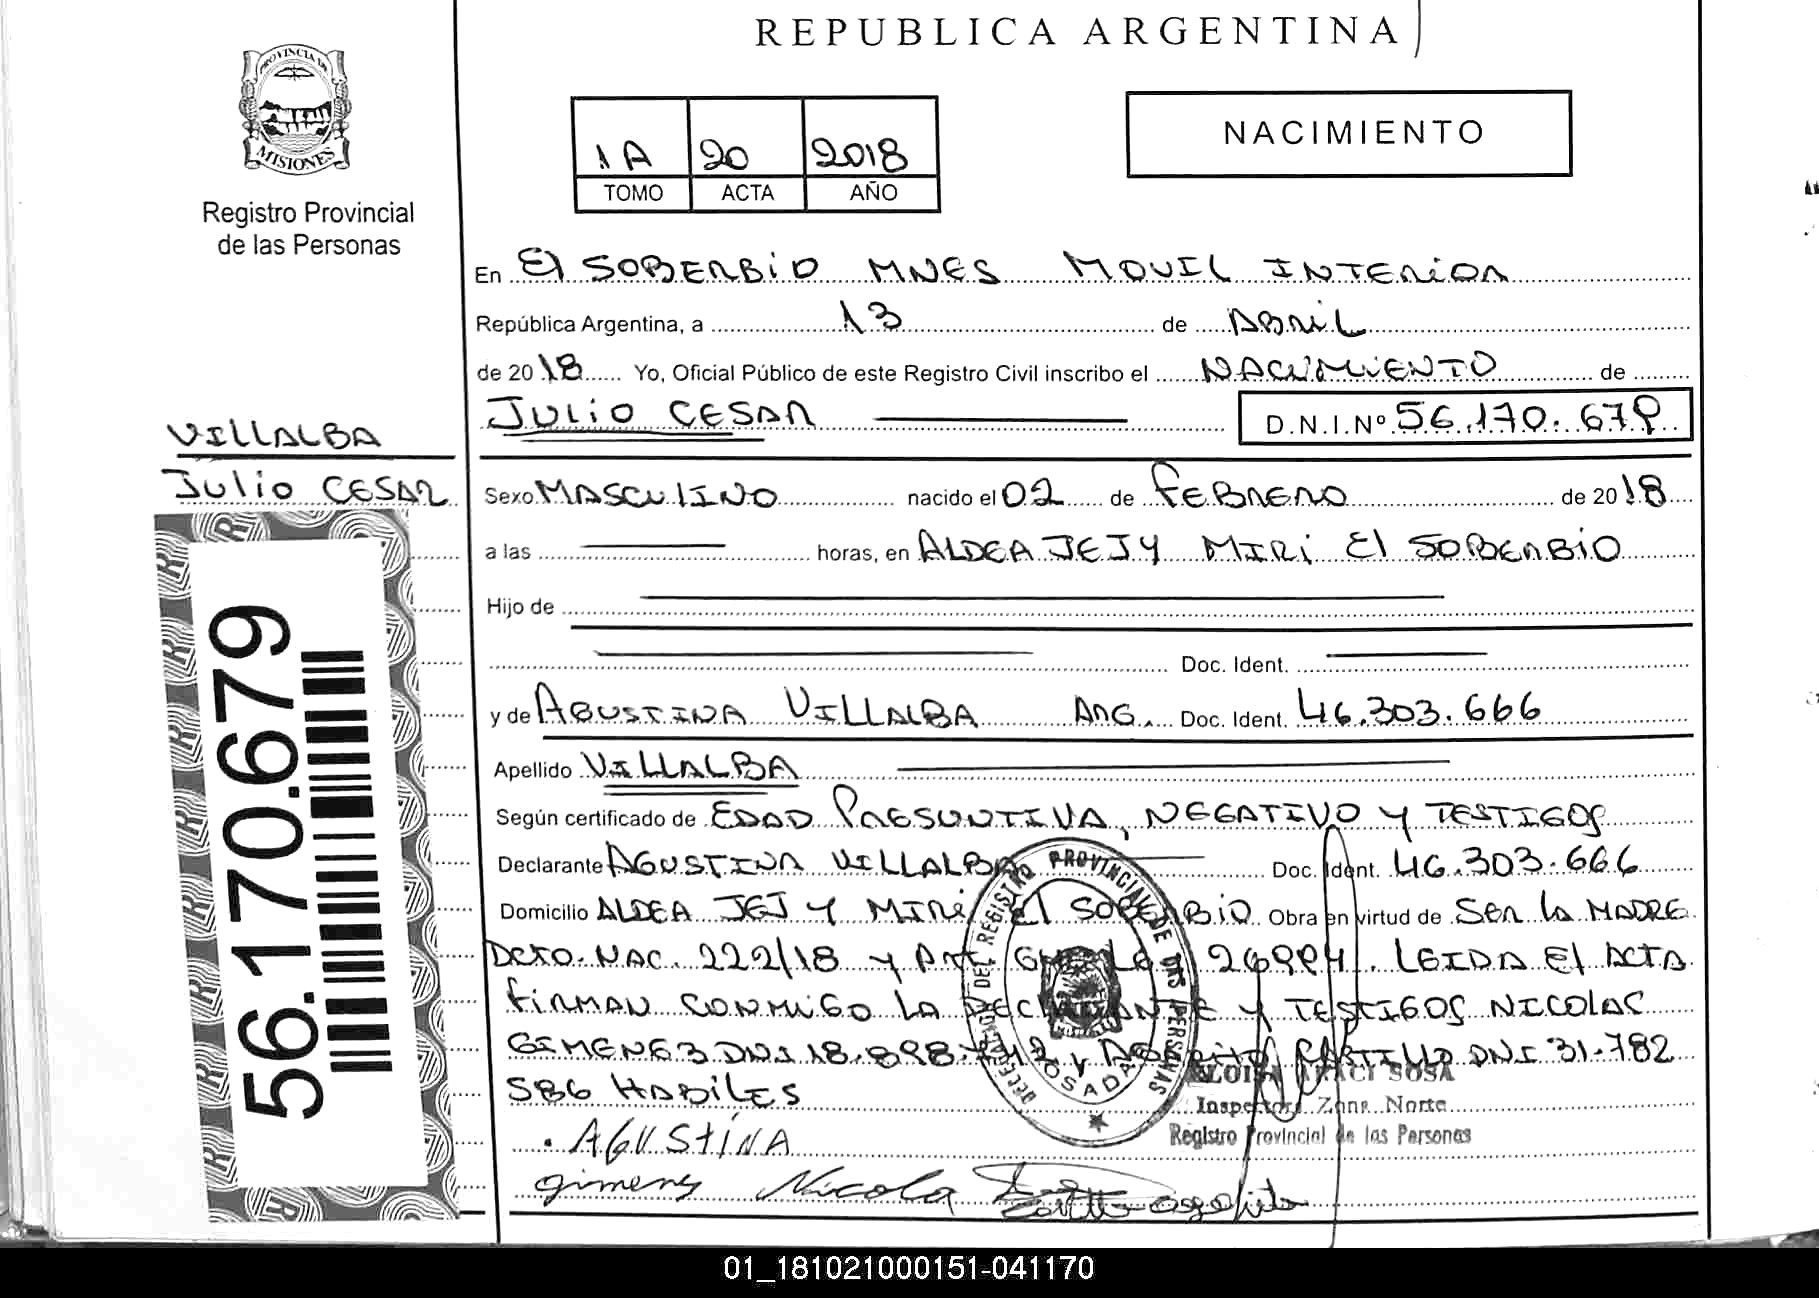 REPUBLICA ARGENTINA
PROVINCIA DE
MISIONES
Registro Provincial
de las Personas
1A 20 2018
TOMO ACTA AÑO
NACIMIENTO
En El SOBERBIO MNES MOVIL INTERIOR
República Argentina, a 13 de ABRIL
de 2018 Yo, Oficial Público de este Registro Civil inscribo el NACIMIENTO de
JULIO CESAR D.N.I.Nº 56.170.679
VILLALBA
Julio CESAR
Sexo MASCULINO nacido el 02 de FEBRERO de 2018
a las horas, en ALDEA JEJY MIRI El SOBERBIO
Hijo de
Doc. Ident.
y de AGUSTINA VILLALBA ARG. Doc. Ident. 46.303.666
Apellido VILLALBA
Según certificado de EDAD PRESUNTIVA, NEGATIVO Y TESTIGOS
Declarante AGUSTINA VILLALBA Doc. Ident. 46.303.666
Domicilio ALDEA JEJY MIRI El SOBERBIO Obra en virtud de SER LA MADRE
DCTO. NAC. 222/18 y ART. 26994. LEIDA El ACTA
FIRMAN CONMIGO LA DECLARANTE Y TESTIGOS NICOLAS
GIMENEZ DNI 18.898. y CASTILLO DNI 31.782
586 HABILES
56.170.679
DELEGACION DEL REGISTRO PROVINCIAL DE LAS PERSONAS
POSADAS
ARACI SOSA
Inspectora Zona Norte
Registro Provincial de las Personas
AGUSTINA
gimenez Nicola
01_181021000151-041170